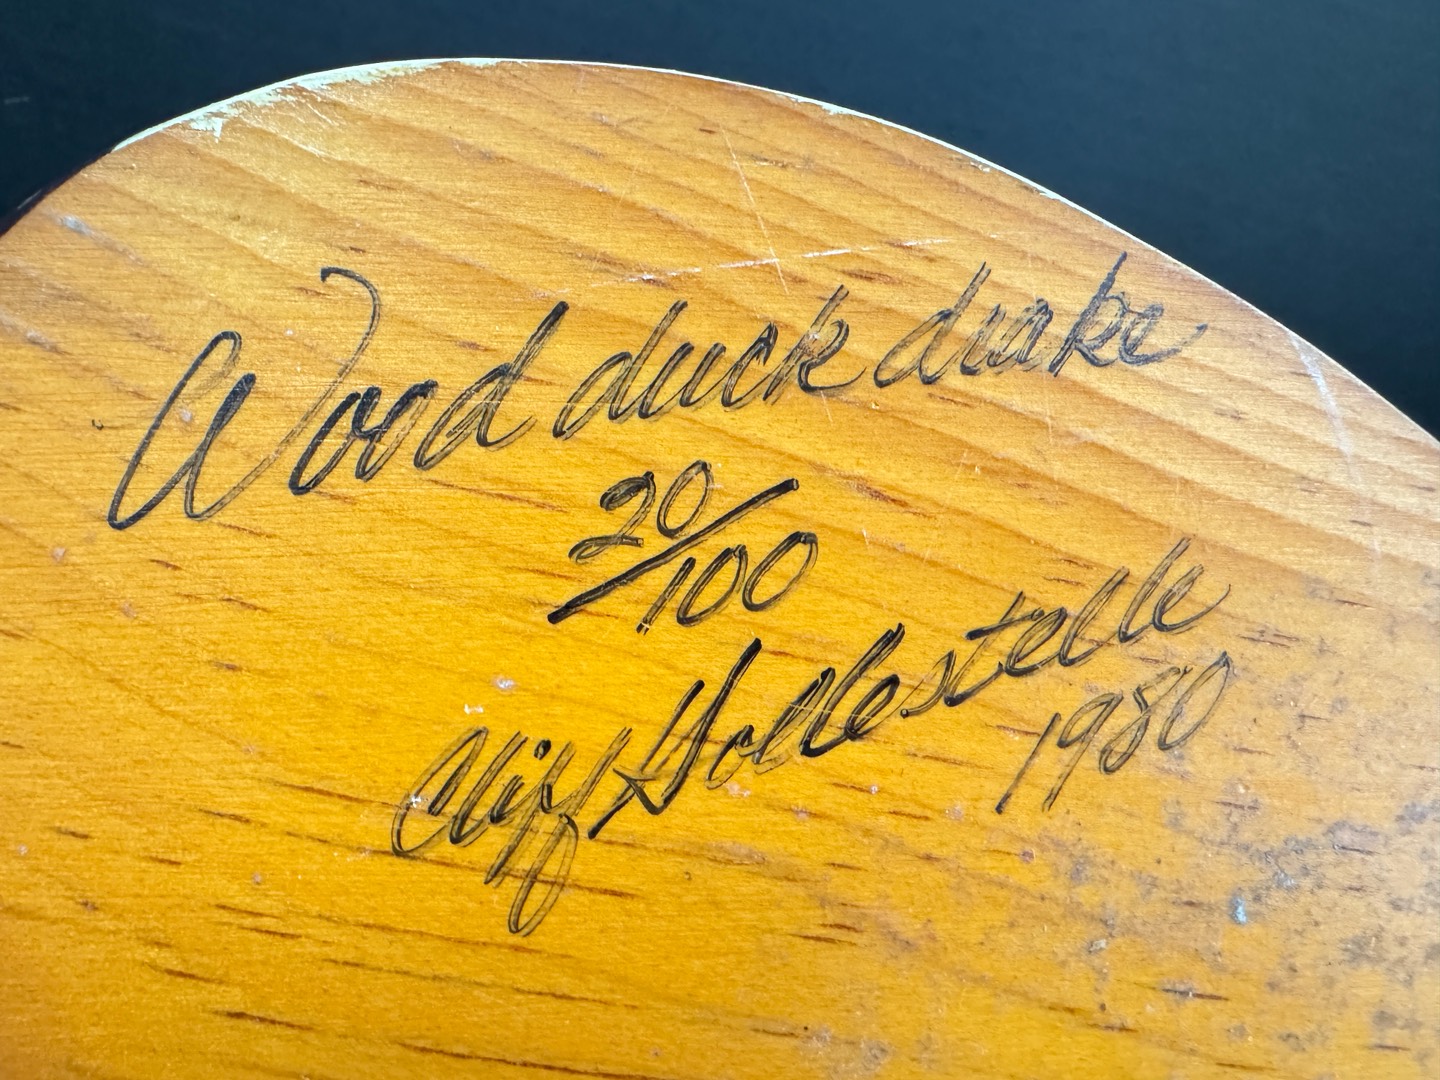 Wood duck drake
20/100
Cliff Hollestelle
1980